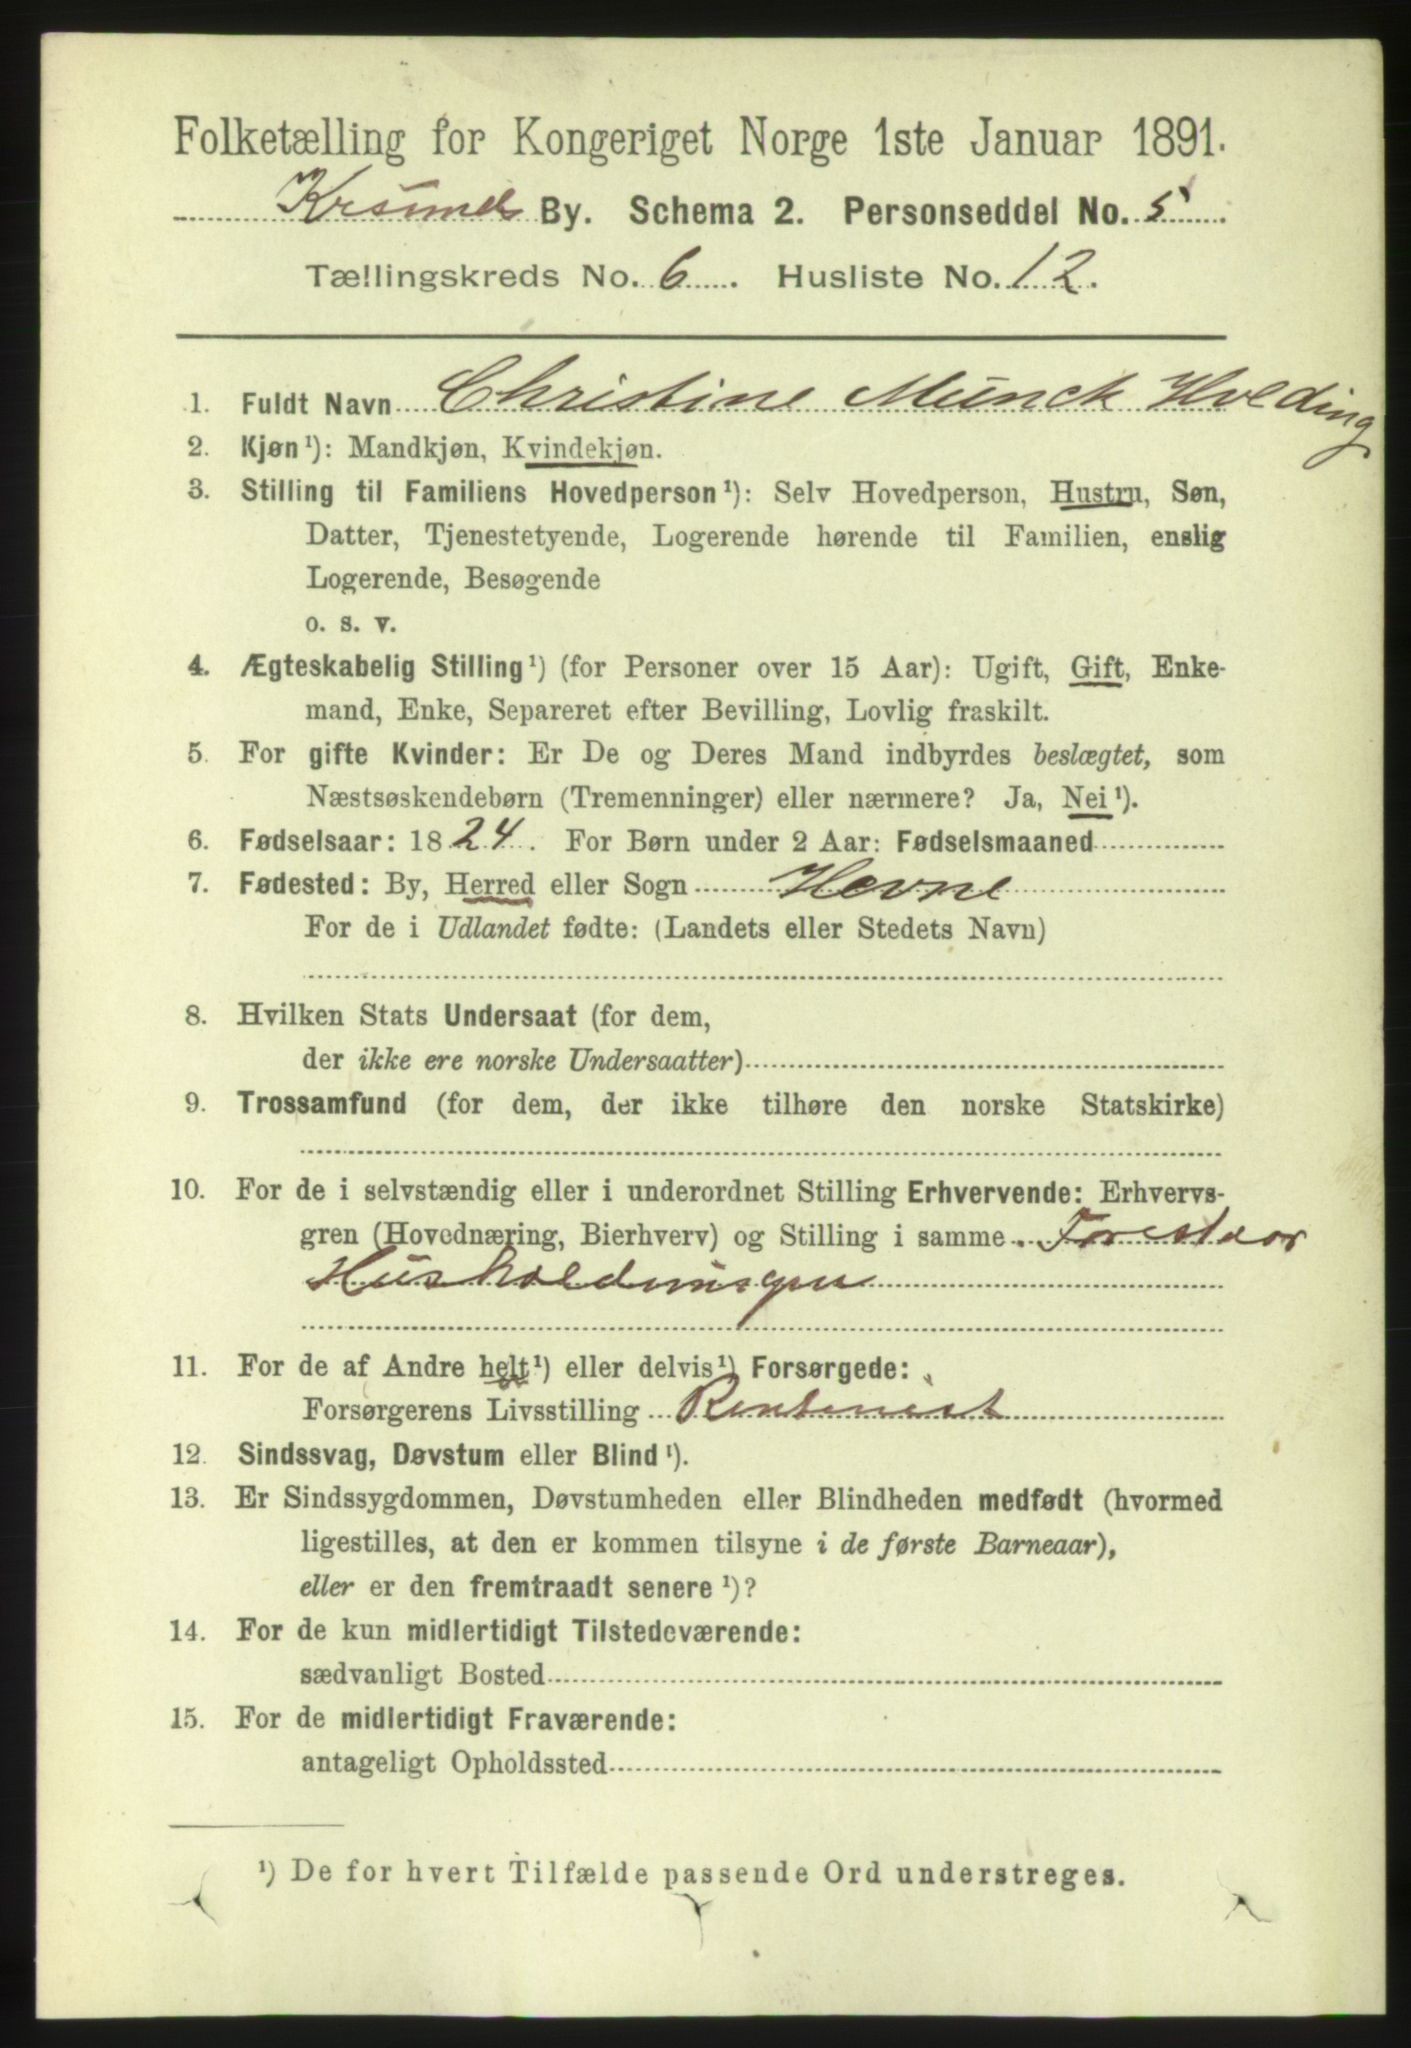 Folketælling for Kongeriget Norge 1ste Januar 1891.
Krsund By. Schema 2. Personseddel No. 5
Tællingskreds No. 6. Husliste No. 12.
1. Fuldt Navn Christine Munck Holding
2. Kjøn¹): Mandkjøn, Kvindekjøn.
3. Stilling til Familiens Hovedperson¹): Selv Hovedperson, Hustru, Søn,
Datter, Tjenestetyende, Logerende hørende til Familien, enslig
Logerende, Besøgende
o. s. v.
4. Ægteskabelig Stilling¹) (for Personer over 15 Aar): Ugift, Gift, Enke-
mand, Enke, Separeret efter Bevilling, Lovlig fraskilt.
5. For gifte Kvinder: Er De og Deres Mand indbyrdes beslægtet, som
Næstsøskendebørn (Tremenninger) eller nærmere? Ja, Nei¹).
6. Fødselsaar: 1824. For Børn under 2 Aar: Fødselsmaaned
7. Fødested: By, Herred eller Sogn Hevne
For de i Udlandet fødte: (Landets eller Stedets Navn)
8. Hvilken Stats Undersaat (for dem,
der ikke ere norske Undersaatter)
9. Trossamfund (for dem, der ikke tilhøre den norske Statskirke)
10. For de i selvstændig eller i underordnet Stilling Erhvervende: Erhvervs-
gren (Hovednæring, Bierhverv) og Stilling i samme. Forestaar
Husholdningen
11. For de af Andre helt¹) eller delvis¹) Forsørgede:
Forsørgerens Livsstilling Rentenist
12. Sindssvag, Døvstum eller Blind¹).
13. Er Sindssygdommen, Døvstumheden eller Blindheden medfødt (hvormed
ligestilles, at den er kommen tilsyne i de første Barneaar),
eller er den fremtraadt senere¹)?
14. For de kun midlertidigt Tilstedeværende:
sædvanligt Bosted
15. For de midlertidigt Fraværende:
antageligt Opholdssted
¹) De for hvert Tilfælde passende Ord understreges.